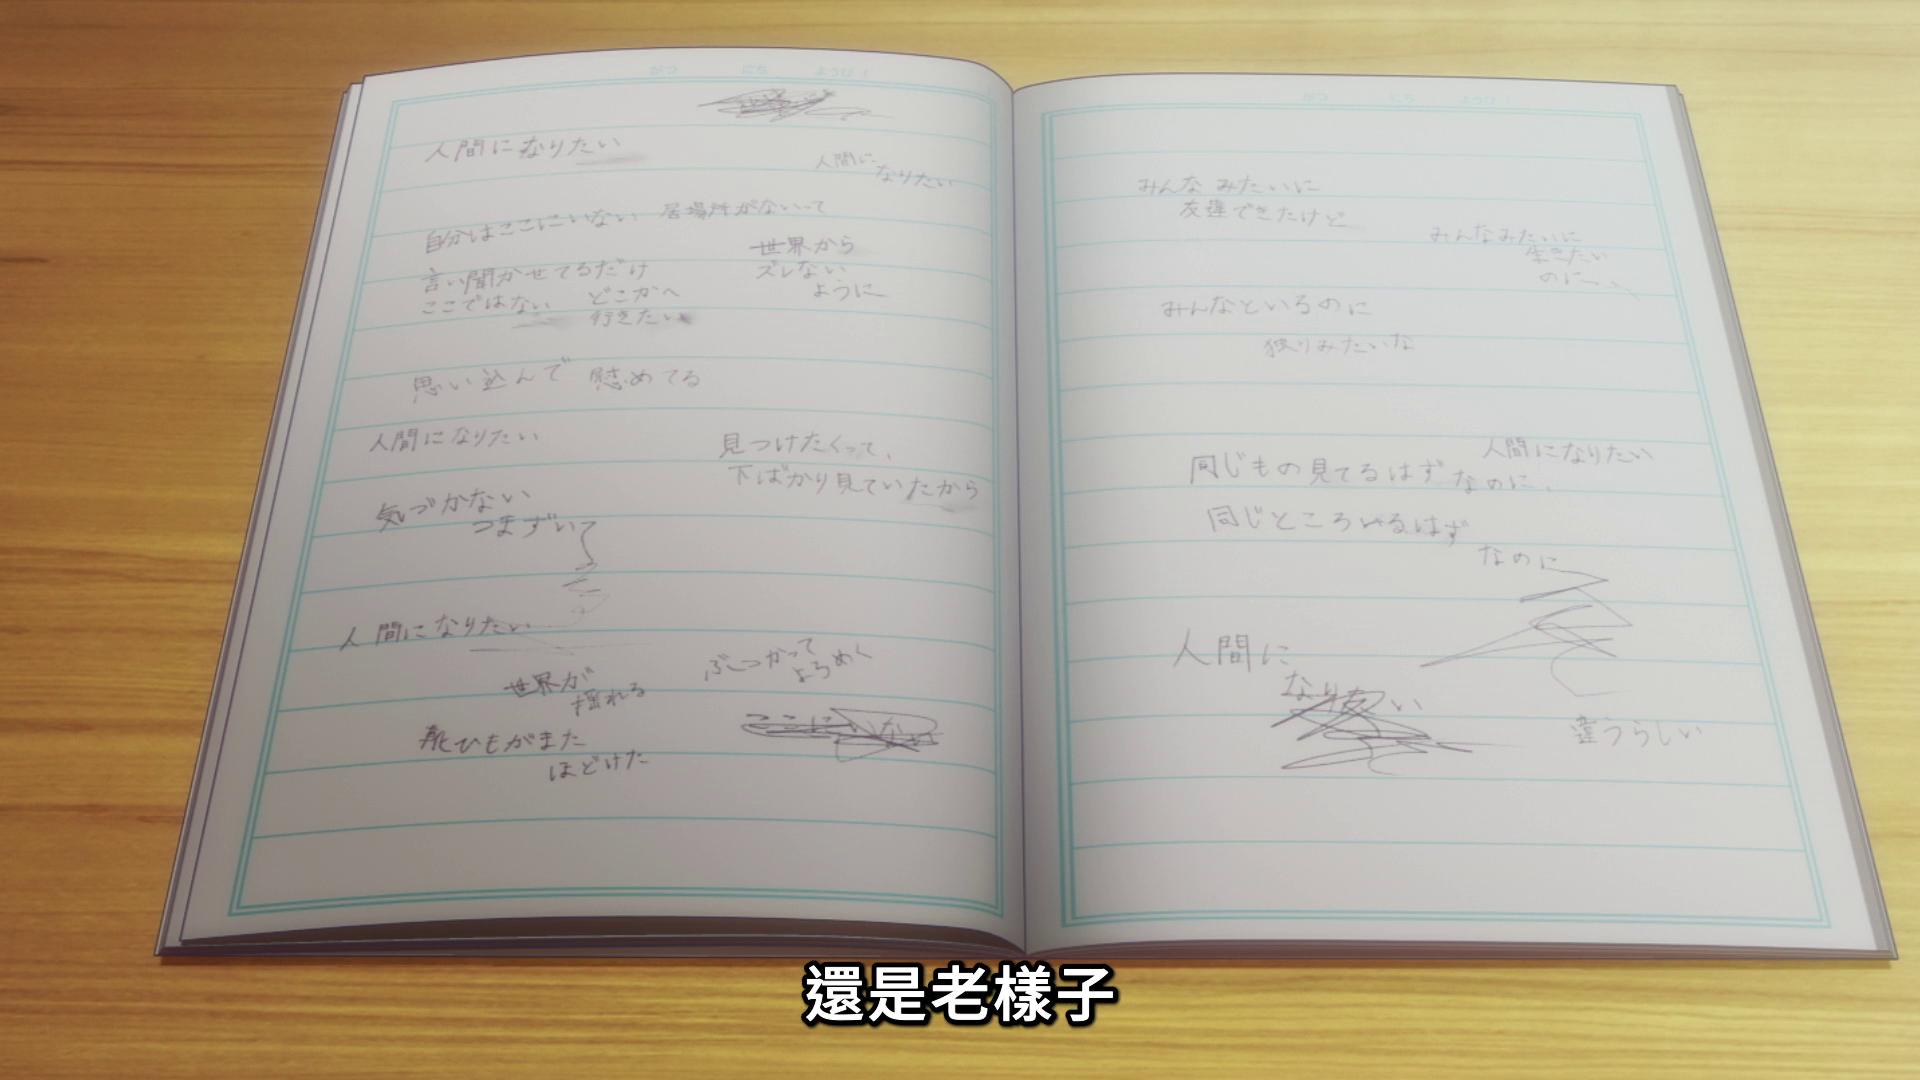 がつ にち ようび
人間になりたい
人間に
なりたい
自分はここにいない 居場所がないって
言い聞かせてるだけ
世界から
ズレない
ように
ここではない どこかへ
行きたい
思い込んで 慰めてる
人間になりたい
見つけたくって、
下ばかり見ていたから
気づかない
つまずいて
人間になりたい
世界が
揺れる
ぶつかって
よろめく
靴ひもがまた
ほどけた
ここにいない
がつ にち ようび
みんな みたいに
友達できたけど
みんなみたいに
生きたい
のに
みんなといるのに
独りみたいな
人間になりたい
同じもの見てるはず なのに、
同じところいるはず
なのに
人間に
なりたい
違うらしい
還是老樣子